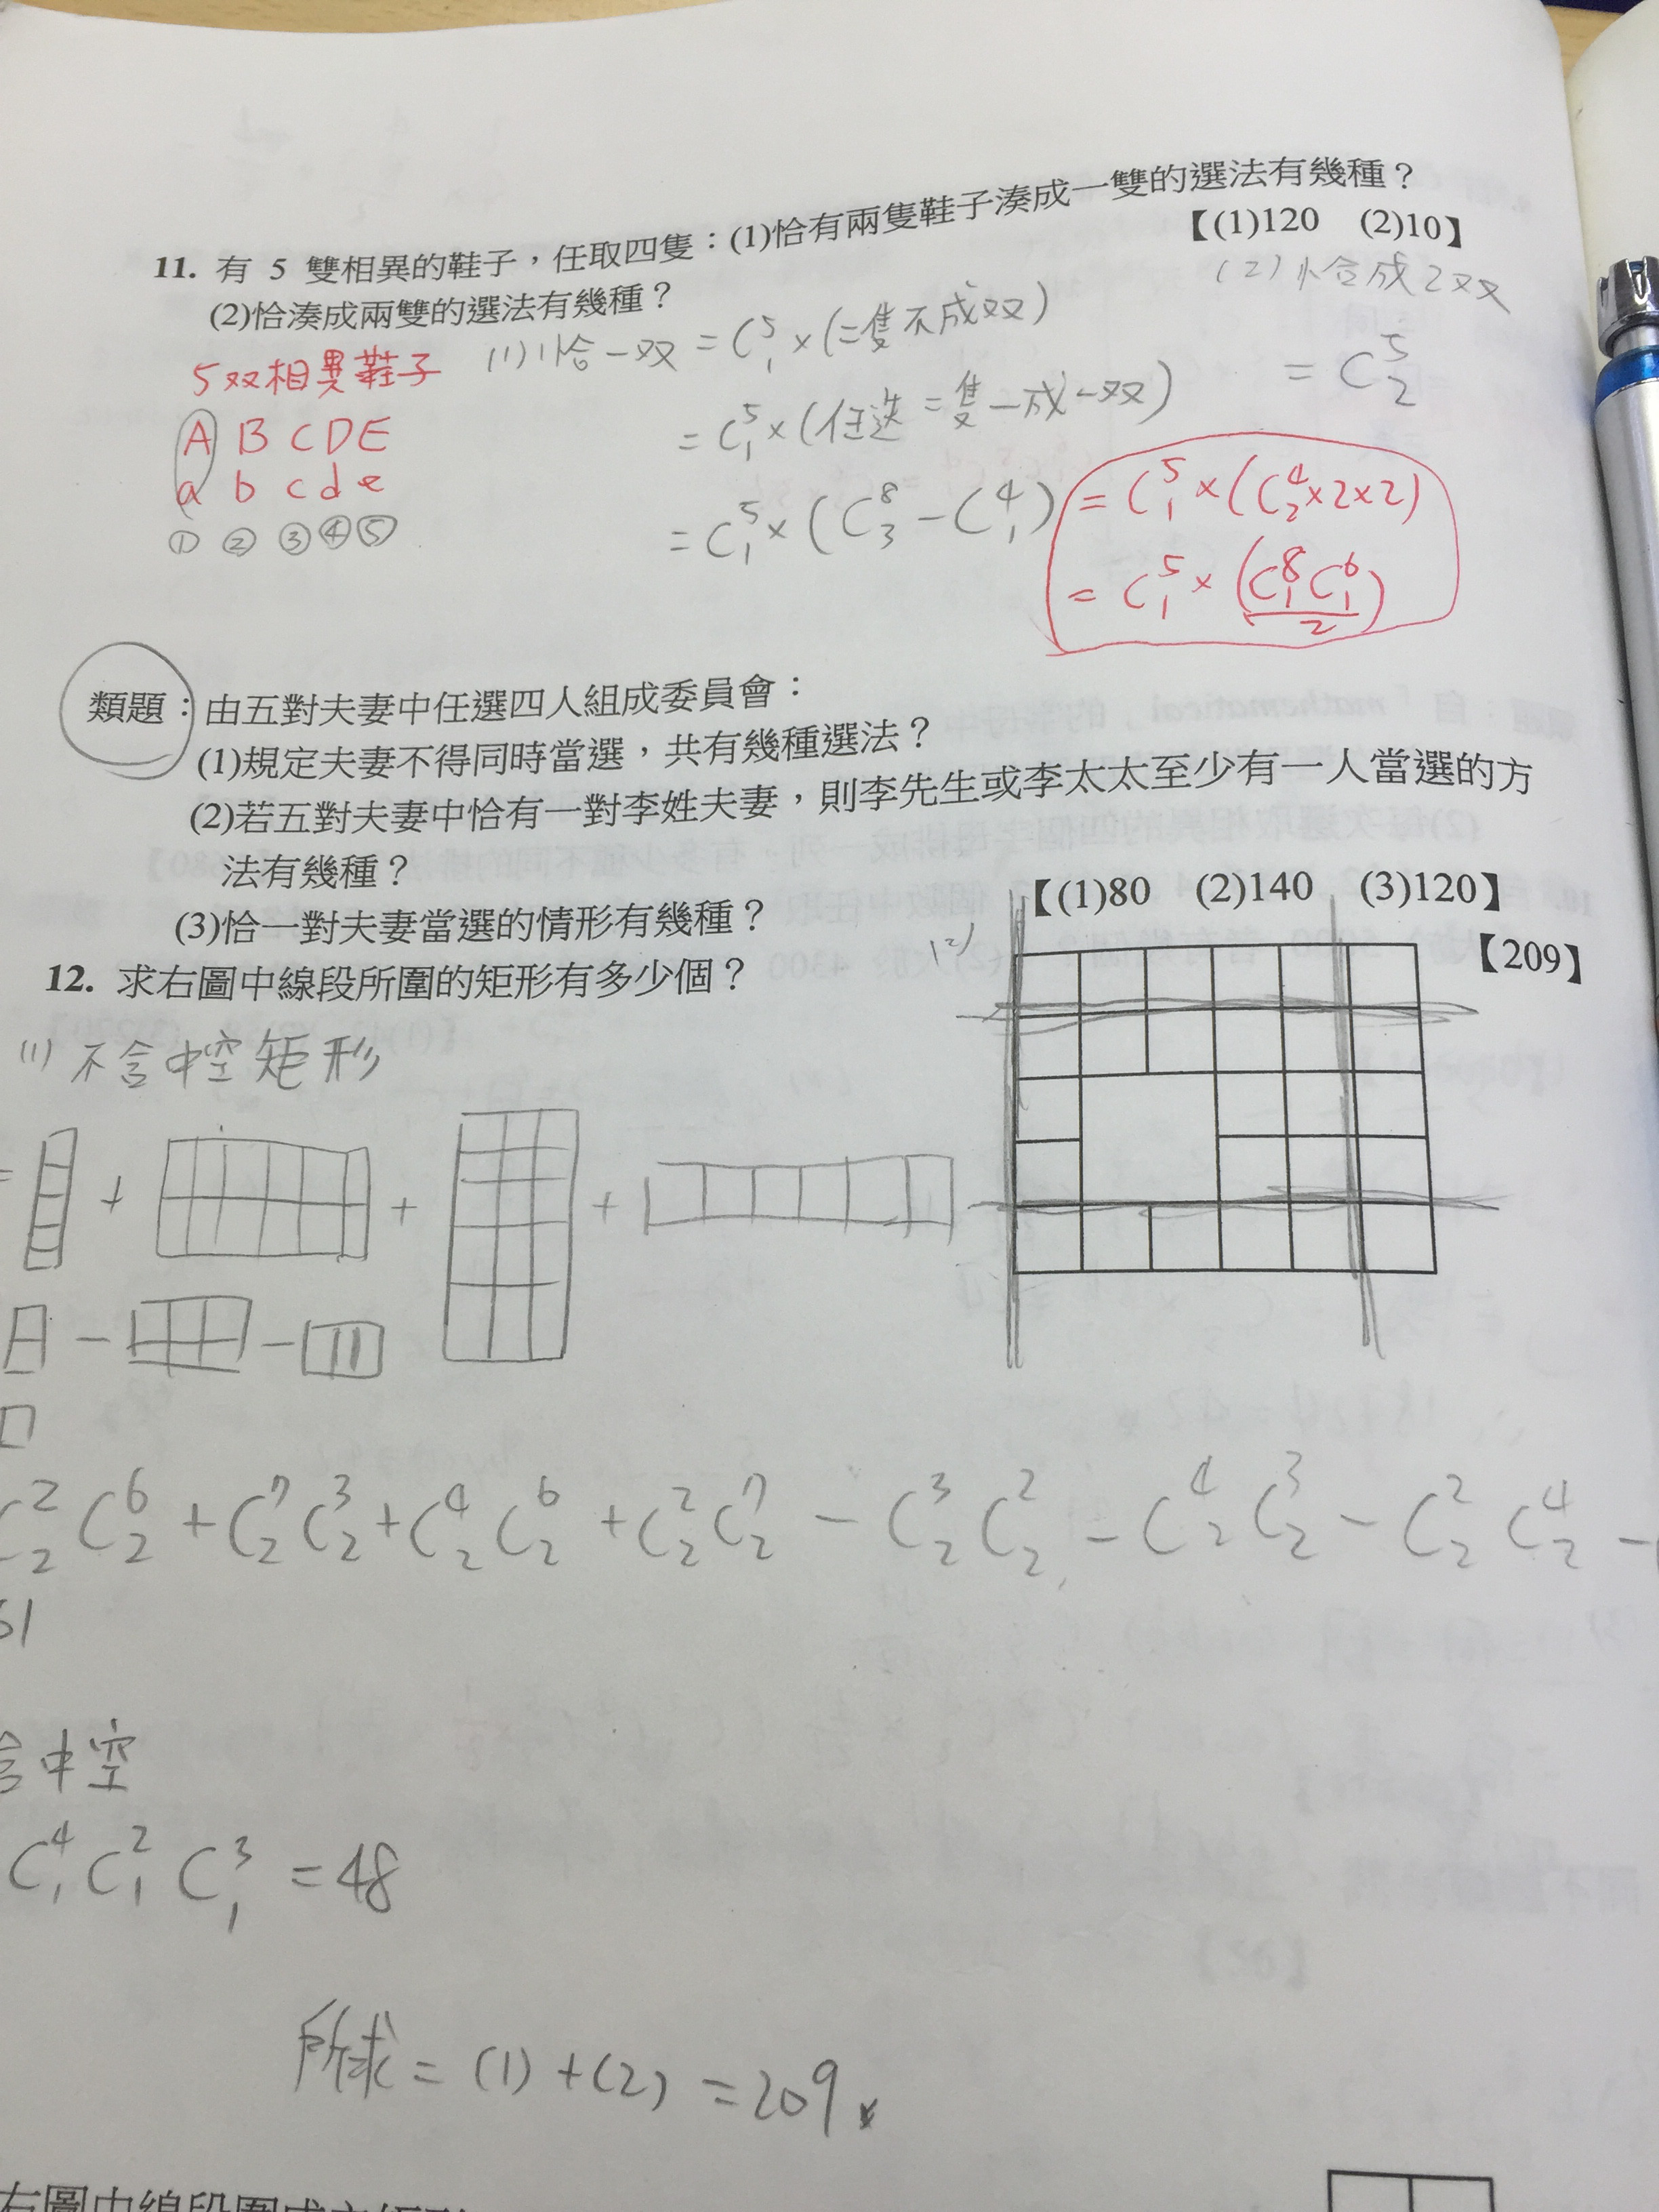 11. 有 5 雙相異的鞋子，任取四隻：(1)恰有兩隻鞋子湊成一雙的選法有幾種？
(2)恰湊成兩雙的選法有幾種？
【(1)120 (2)10】
(2)恰合成2双
5双相異鞋子
A B C D E
a b c d e
① ② ③ ④ ⑤
(1)恰一双 = C⁵₁ × (二隻不成双)
= C⁵₁ × (任选二隻－成一双)
= C⁵₁ × (C⁸₃ − C⁴₁)
= C⁵₂
= C⁵₁ × (C⁴₂ × 2 × 2)
= C⁵₁ × (C⁸₁ C⁶₁ / 2)
類題：由五對夫妻中任選四人組成委員會：
(1)規定夫妻不得同時當選，共有幾種選法？
(2)若五對夫妻中恰有一對李姓夫妻，則李先生或李太太至少有一人當選的方
法有幾種？
(3)恰一對夫妻當選的情形有幾種？
【(1)80 (2)140 (3)120】
12. 求右圖中線段所圍的矩形有多少個？
【209】
(2)
(1) 不含中空矩形
= + + +
− −
C²₂ C⁶₂ + C⁷₂ C³₂ + C⁴₂ C⁶₂ + C²₂ C⁷₂ − C³₂ C²₂ − C⁴₂ C³₂ − C²₂ C⁴₂ −
61
含中空
C⁴₁ C²₁ C³₁ = 48
所求 = (1) + (2) = 209
右圖中線段圍成